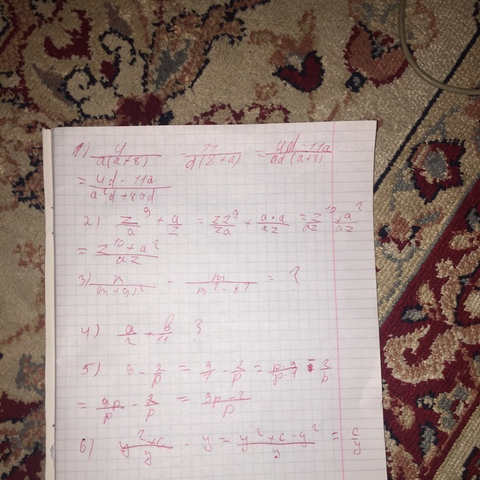 1) 4/a(a+8) 11/d(8+a) = 4d-11a/ad(a+8)
= 4d-11a/a²d+8ad
2) z⁹/a + a/z = zz⁹/za + a·a/az = z¹⁰/az + a²/az
= z¹⁰+a²/az
3) m/ - m/ = ?
4) a/2 + b/11 ?
5) 9 - 2/p = 9/1 - 2/p = p·9/p·1 - 2/p
= 9p/p - 2/p = 9p-2/p
6) y²+c/y - y = y²+c-y²/y = c/y